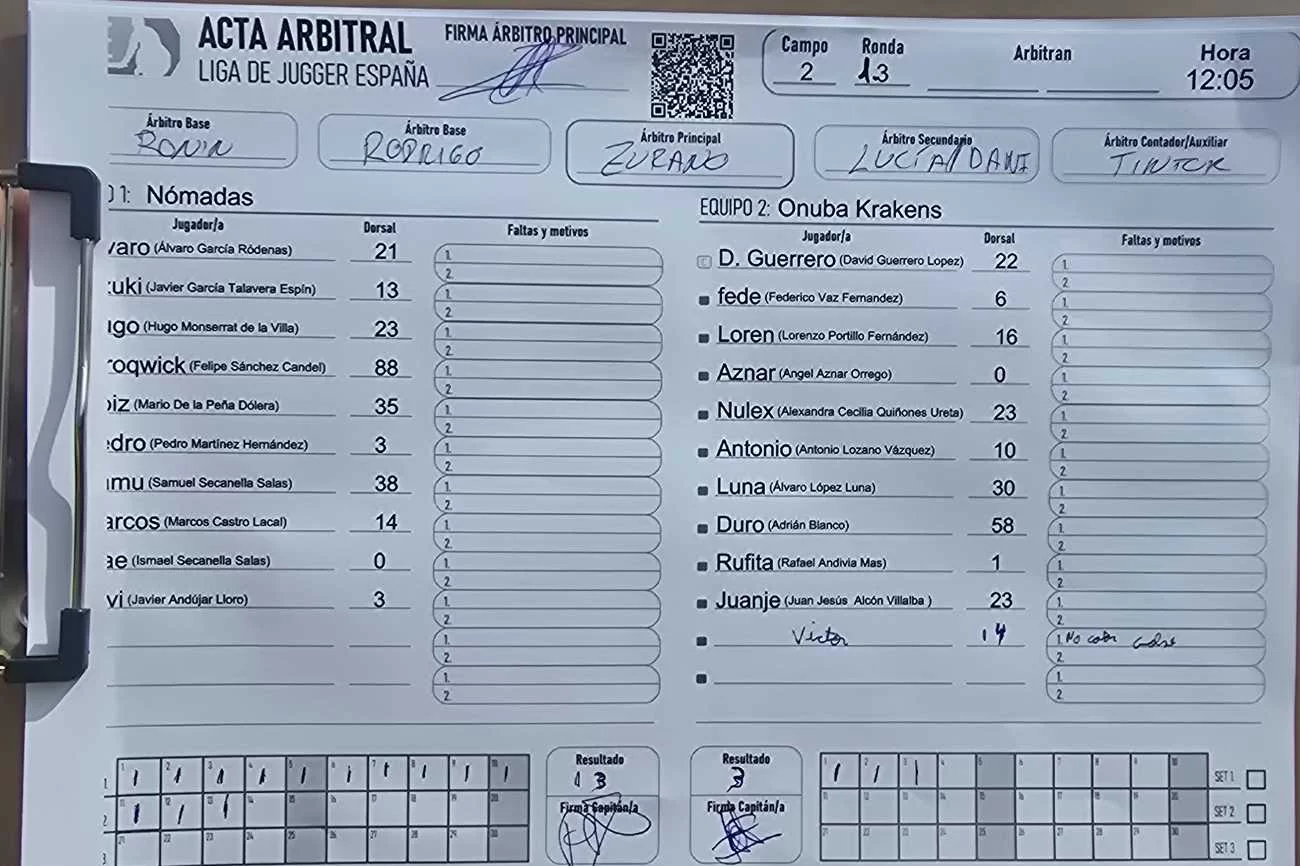 ACTA ARBITRAL
LIGA DE JUGGER ESPAÑA
FIRMA ÁRBITRO PRINCIPAL
Campo Ronda Arbitran Hora
2 13 12:05
Árbitro Base Árbitro Base Árbitro Principal Árbitro Secundario Árbitro Contador/Auxiliar
RONIN RODRIGO ZURANO LUCÍA/DANI
1: Nómadas
Jugador/a Dorsal Faltas y motivos
varo (Álvaro García Ródenas) 21 1. 2.
uki (Javier García Talavera Espín) 13 1. 2.
igo (Hugo Monserrat de la Villa) 23 1. 2.
roqwick (Felipe Sánchez Candel) 88 1. 2.
iz (Mario De la Peña Dólera) 35 1. 2.
dro (Pedro Martínez Hernández) 3 1. 2.
mu (Samuel Secanella Salas) 38 1. 2.
arcos (Marcos Castro Lacal) 14 1. 2.
ae (Ismael Secanella Salas) 0 1. 2.
vi (Javier Andújar Lloro) 3 1. 2.
1. 2.
1. 2.
EQUIPO 2: Onuba Krakens
Jugador/a Dorsal Faltas y motivos
C D. Guerrero (David Guerrero Lopez) 22 1. 2.
fede (Federico Vaz Fernandez) 6 1. 2.
Loren (Lorenzo Portillo Fernández) 16 1. 2.
Aznar (Angel Aznar Orrego) 0 1. 2.
Nulex (Alexandra Cecilia Quiñones Ureta) 23 1. 2.
Antonio (Antonio Lozano Vázquez) 10 1. 2.
Luna (Álvaro López Luna) 30 1. 2.
Duro (Adrián Blanco) 58 1. 2.
Rufita (Rafael Andivia Mas) 1 1. 2.
Juanje (Juan Jesús Alcón Villalba ) 23 1. 2.
Victor 14 1. No 2.
1. 2.
1 1 2 3 4 5 6 7 8 9 10
2 11 12 13 14 15 16 17 18 19 20
3 21 22 23 24 25 26 27 28 29 30
Resultado
13
Firma Capitán/a
Resultado
3
Firma Capitán/a
1 2 3 4 5 6 7 8 9 10 SET 1
11 12 13 14 15 16 17 18 19 20 SET 2
21 22 23 24 25 26 27 28 29 30 SET 3